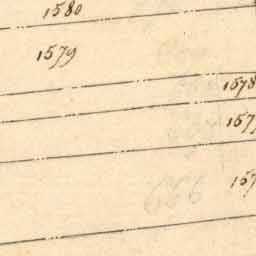 1580
1579
1578
157
157